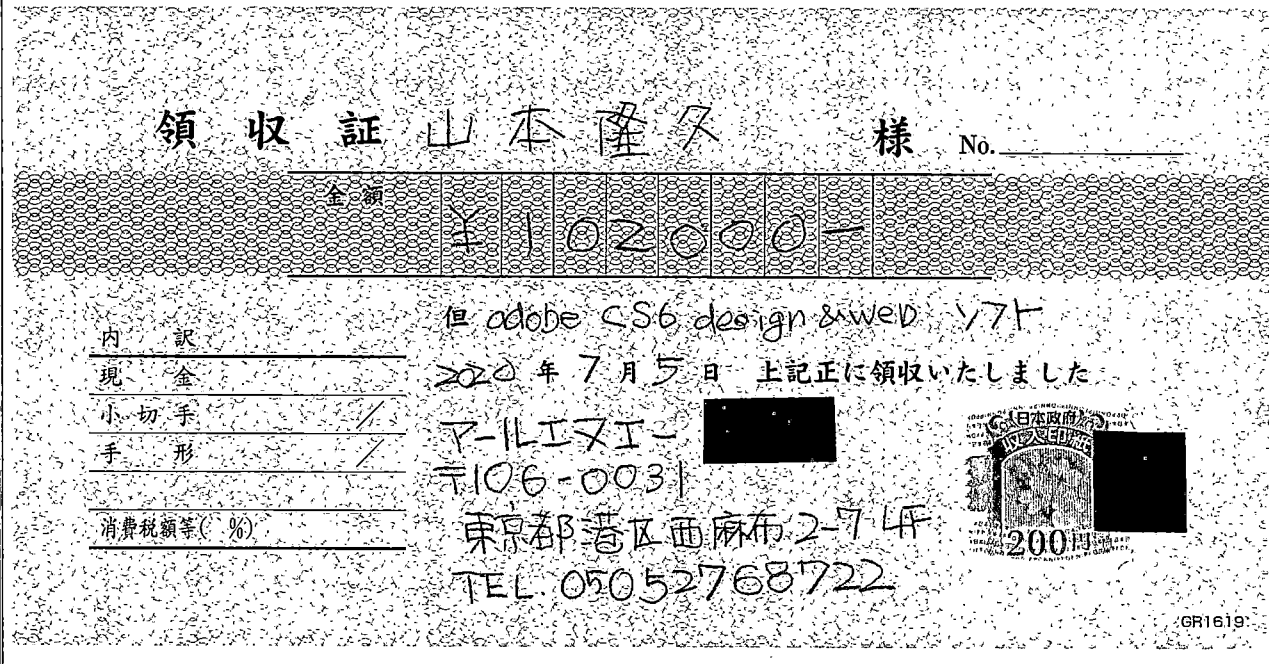 領収証 山本隆久 様 No.
金額 ¥102000-
但 adobe CS6 design &web ソフト
2020年7月5日 上記正に領収いたしました
内訳
現金
小切手 /
手形 /
消費税額等( %)
アールエヌエー
〒106-0031
東京都港区西麻布2-7 4F
TEL 05052768722
日本政府
収入印紙
200円
GR1619